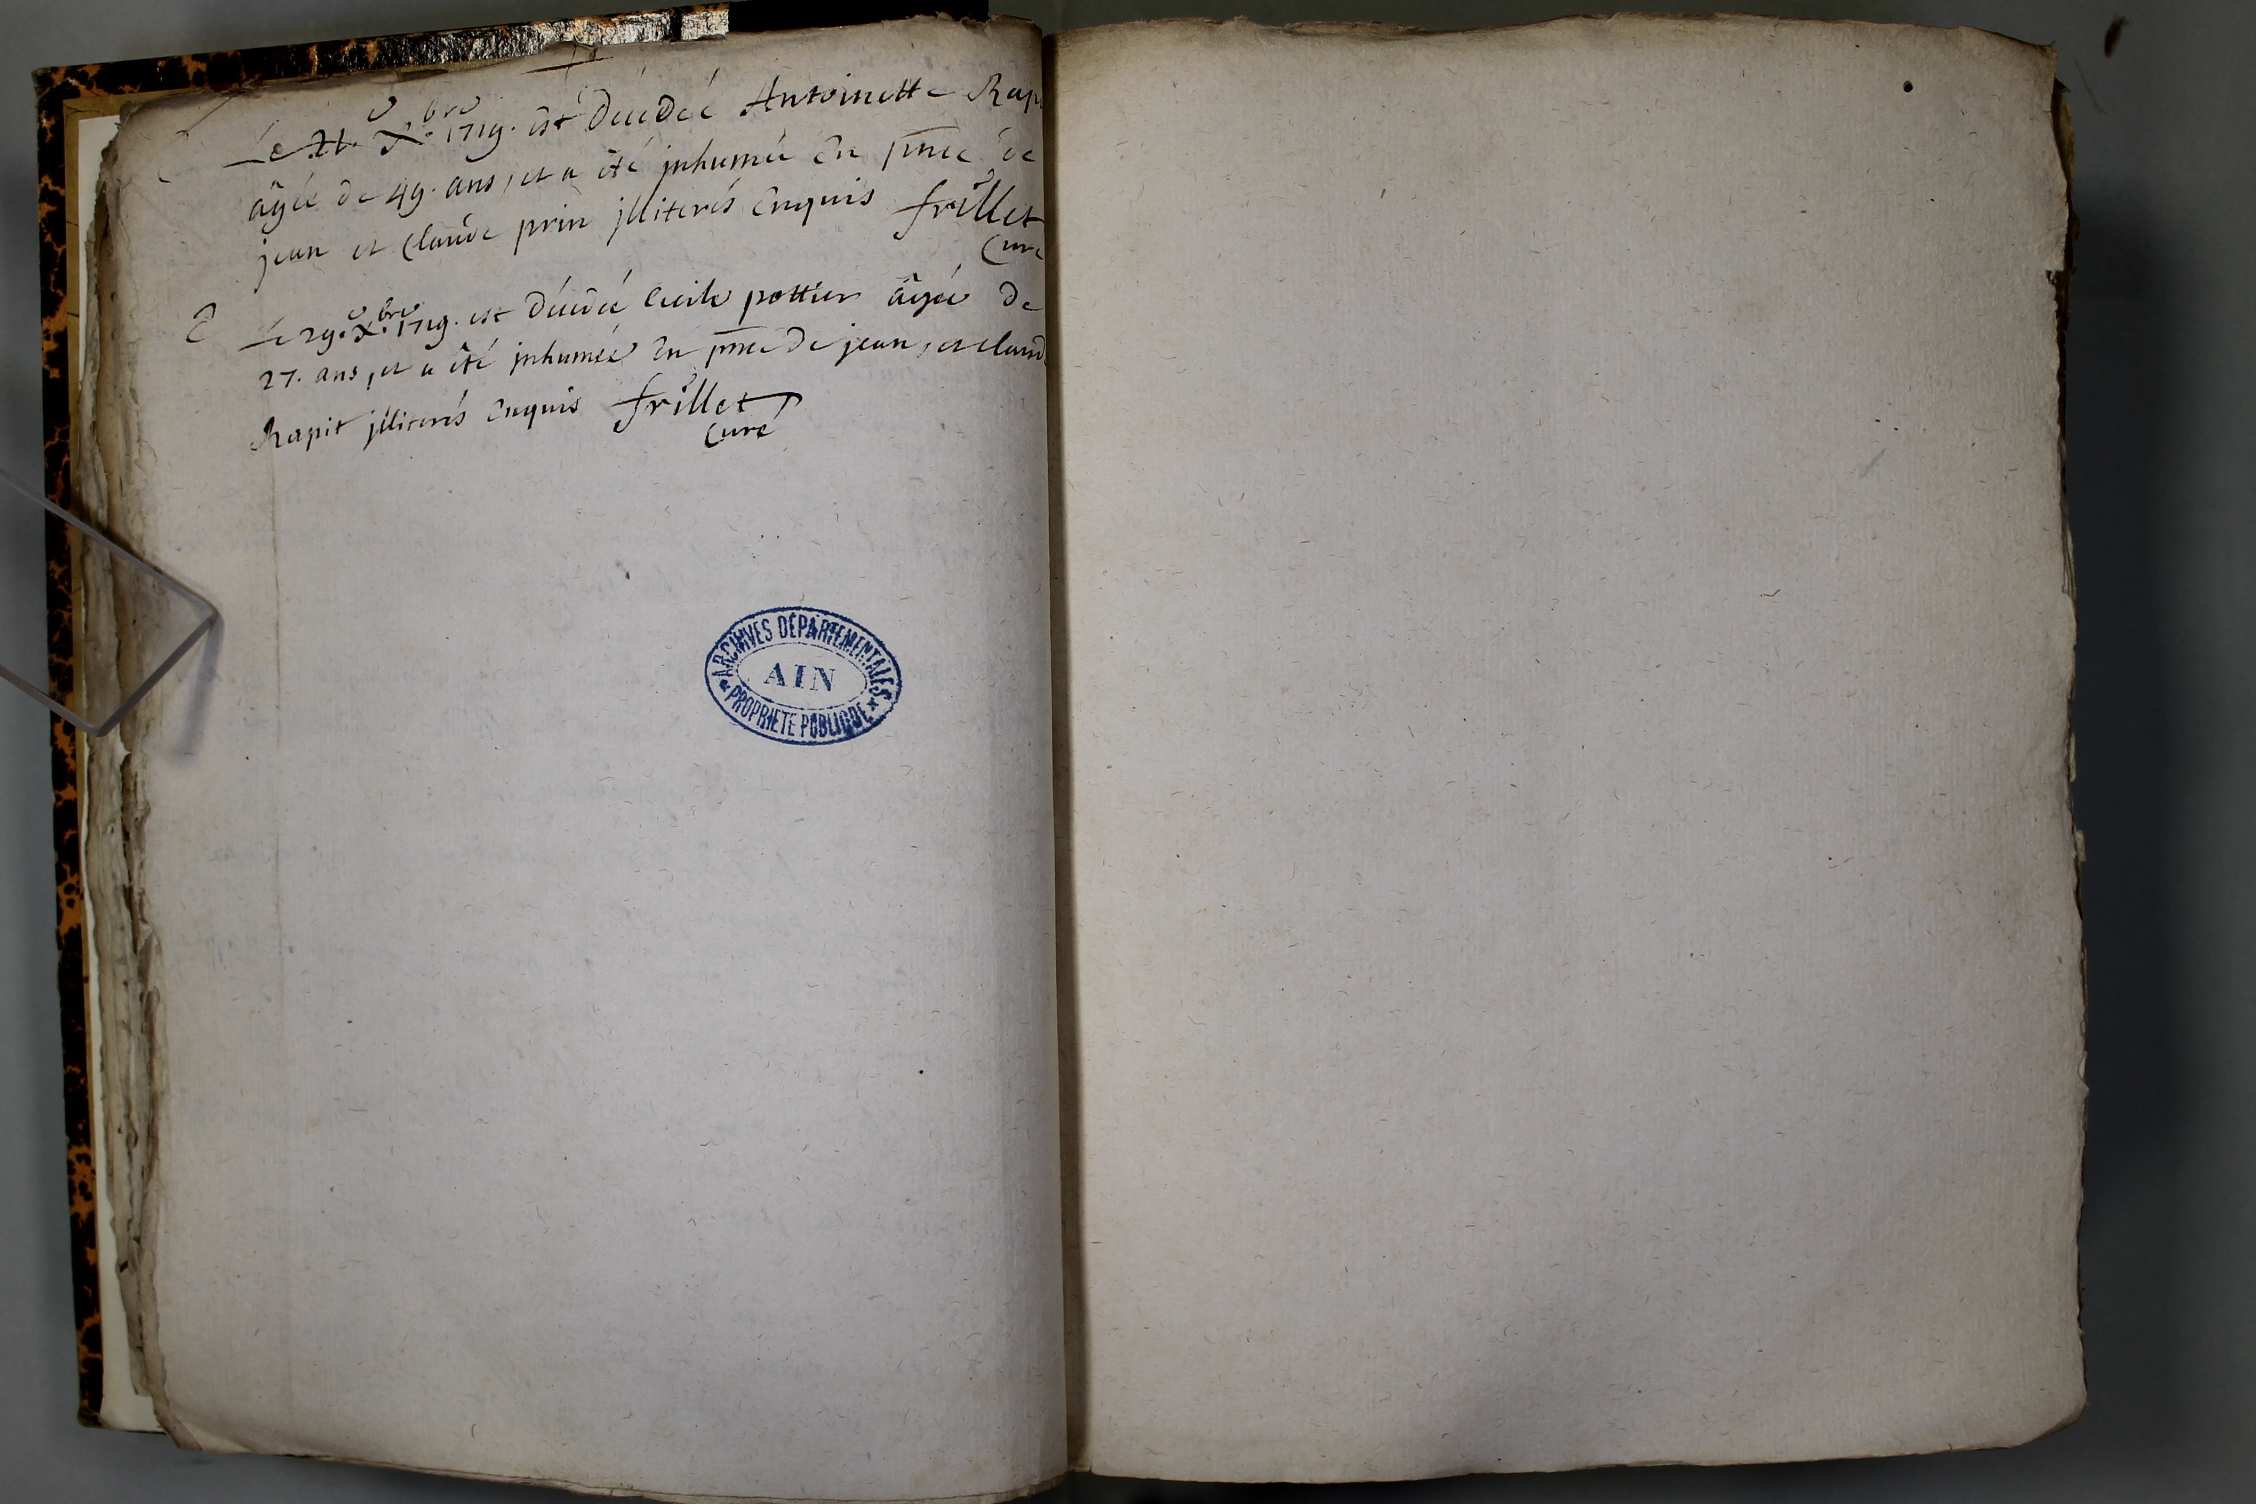 Le 21.e Xbre. 1719. est décédéé Antoinette Rap
âgéé de 49. ans, et a été jnhuméé En pnce de
jean et Claude prin jlliterés Enquis frillet
Curé
Le 29.e Xbre. 1719. est décédéé Cecile pottier âgéé de
27. ans, et a été jnhuméé En pnce de jean, et claud
Rapit jlliterés Enquis frillet
Curé
ARCHIVES DÉPARTEMENTALES
AIN
PROPRIÉTÉ PUBLIQUE